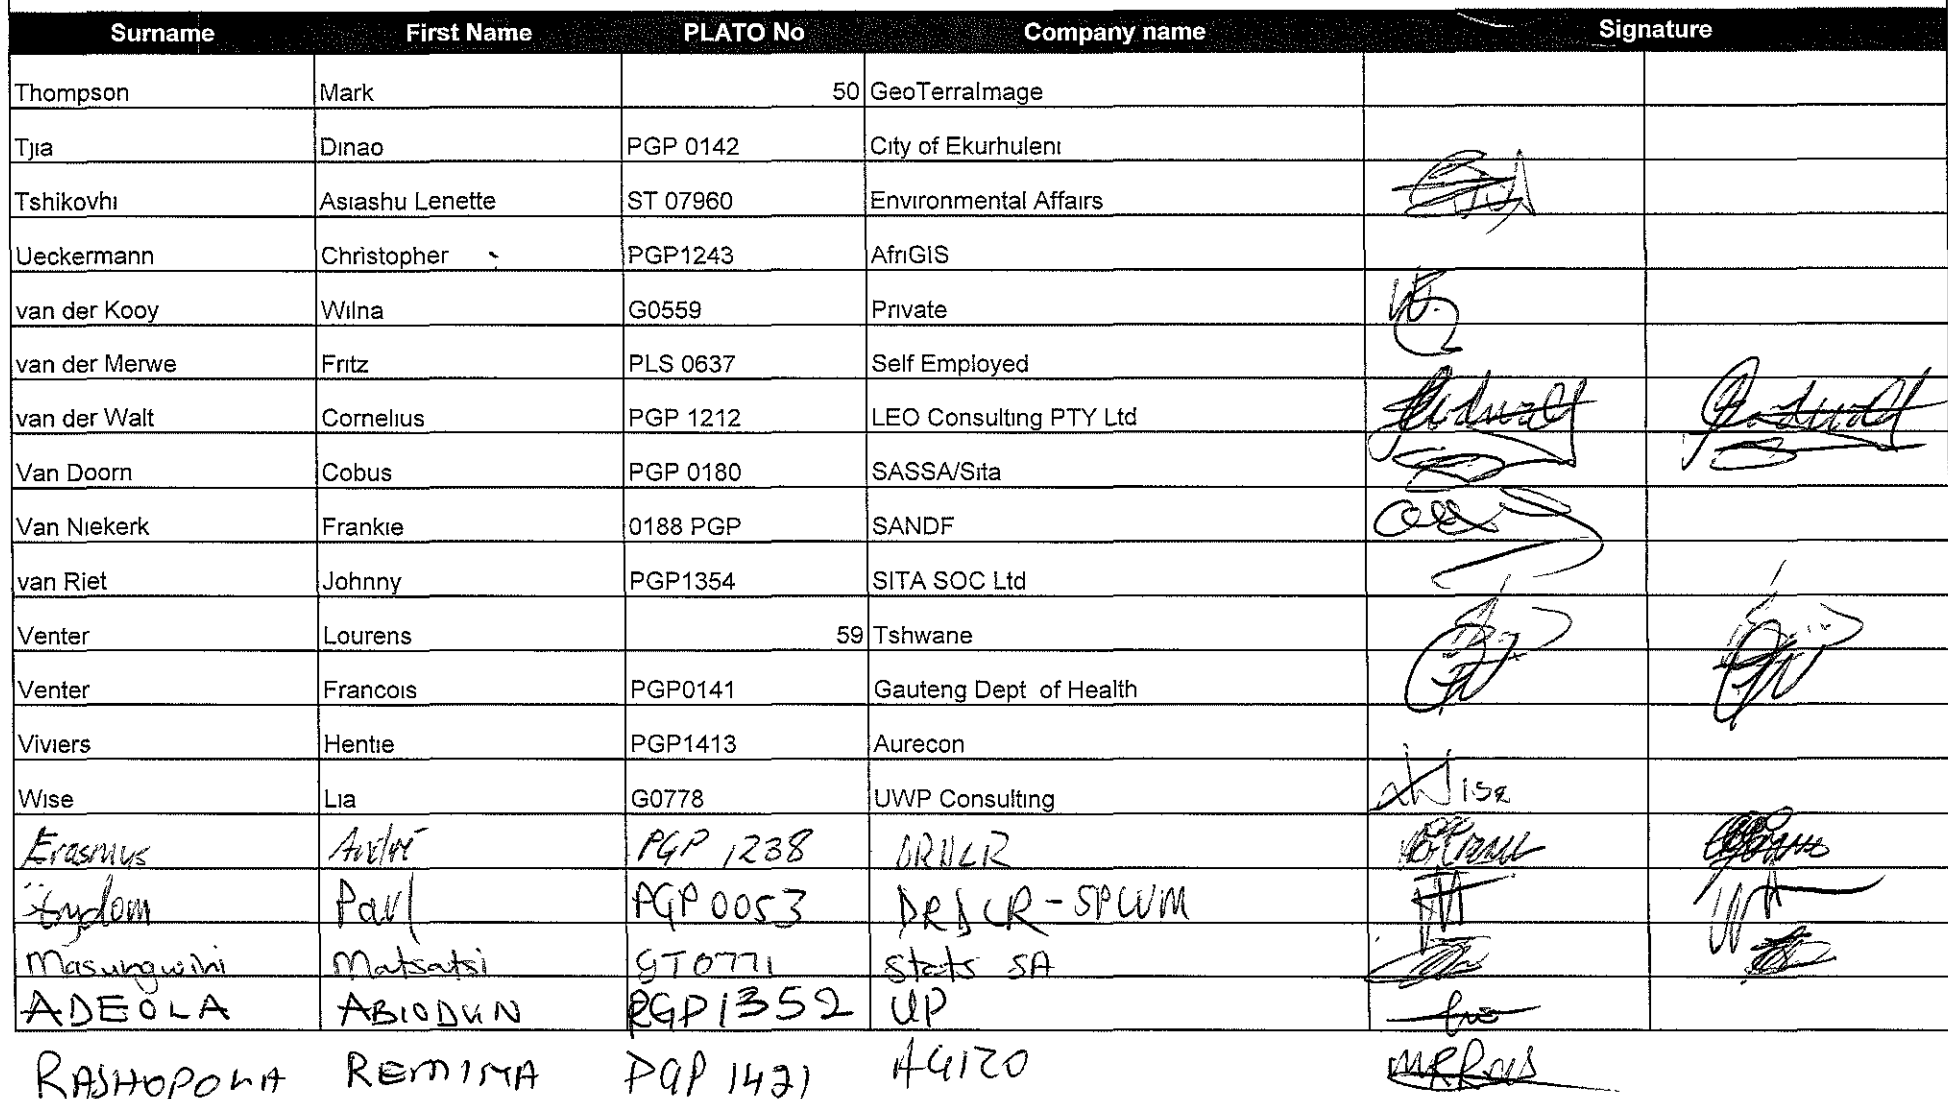 Surname First Name PLATO No Company name Signature
Thompson Mark 50 GeoTerraImage
Tjia Dinao PGP 0142 City of Ekurhuleni
Tshikovhi Asiashu Lenette ST 07960 Environmental Affairs
Ueckermann Christopher PGP1243 AfriGIS
van der Kooy Wilna G0559 Private
van der Merwe Fritz PLS 0637 Self Employed
van der Walt Cornelius PGP 1212 LEO Consulting PTY Ltd
Van Doorn Cobus PGP 0180 SASSA/Sita
Van Niekerk Frankie 0188 PGP SANDF
van Riet Johnny PGP1354 SITA SOC Ltd
Venter Lourens 59 Tshwane
Venter Francois PGP0141 Gauteng Dept of Health
Viviers Hentie PGP1413 Aurecon
Wise Lia G0778 UWP Consulting Wise
Erasmus André PGP 1238 DRDLR
Paul PGP 0053 DRDLR-SPLUM
Masungwini Matsatsi GT0771 Stats SA
ADEOLA ABIODUN PGP1352 UP
PGP 1421